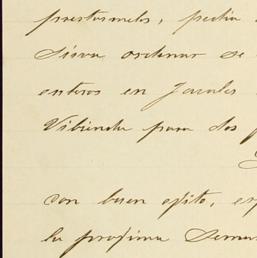 prestarnelos, pedia
Sirva ordenar se
enteros en Jacales
Vibienda para dos
con buen exito, es
la proxima Seman